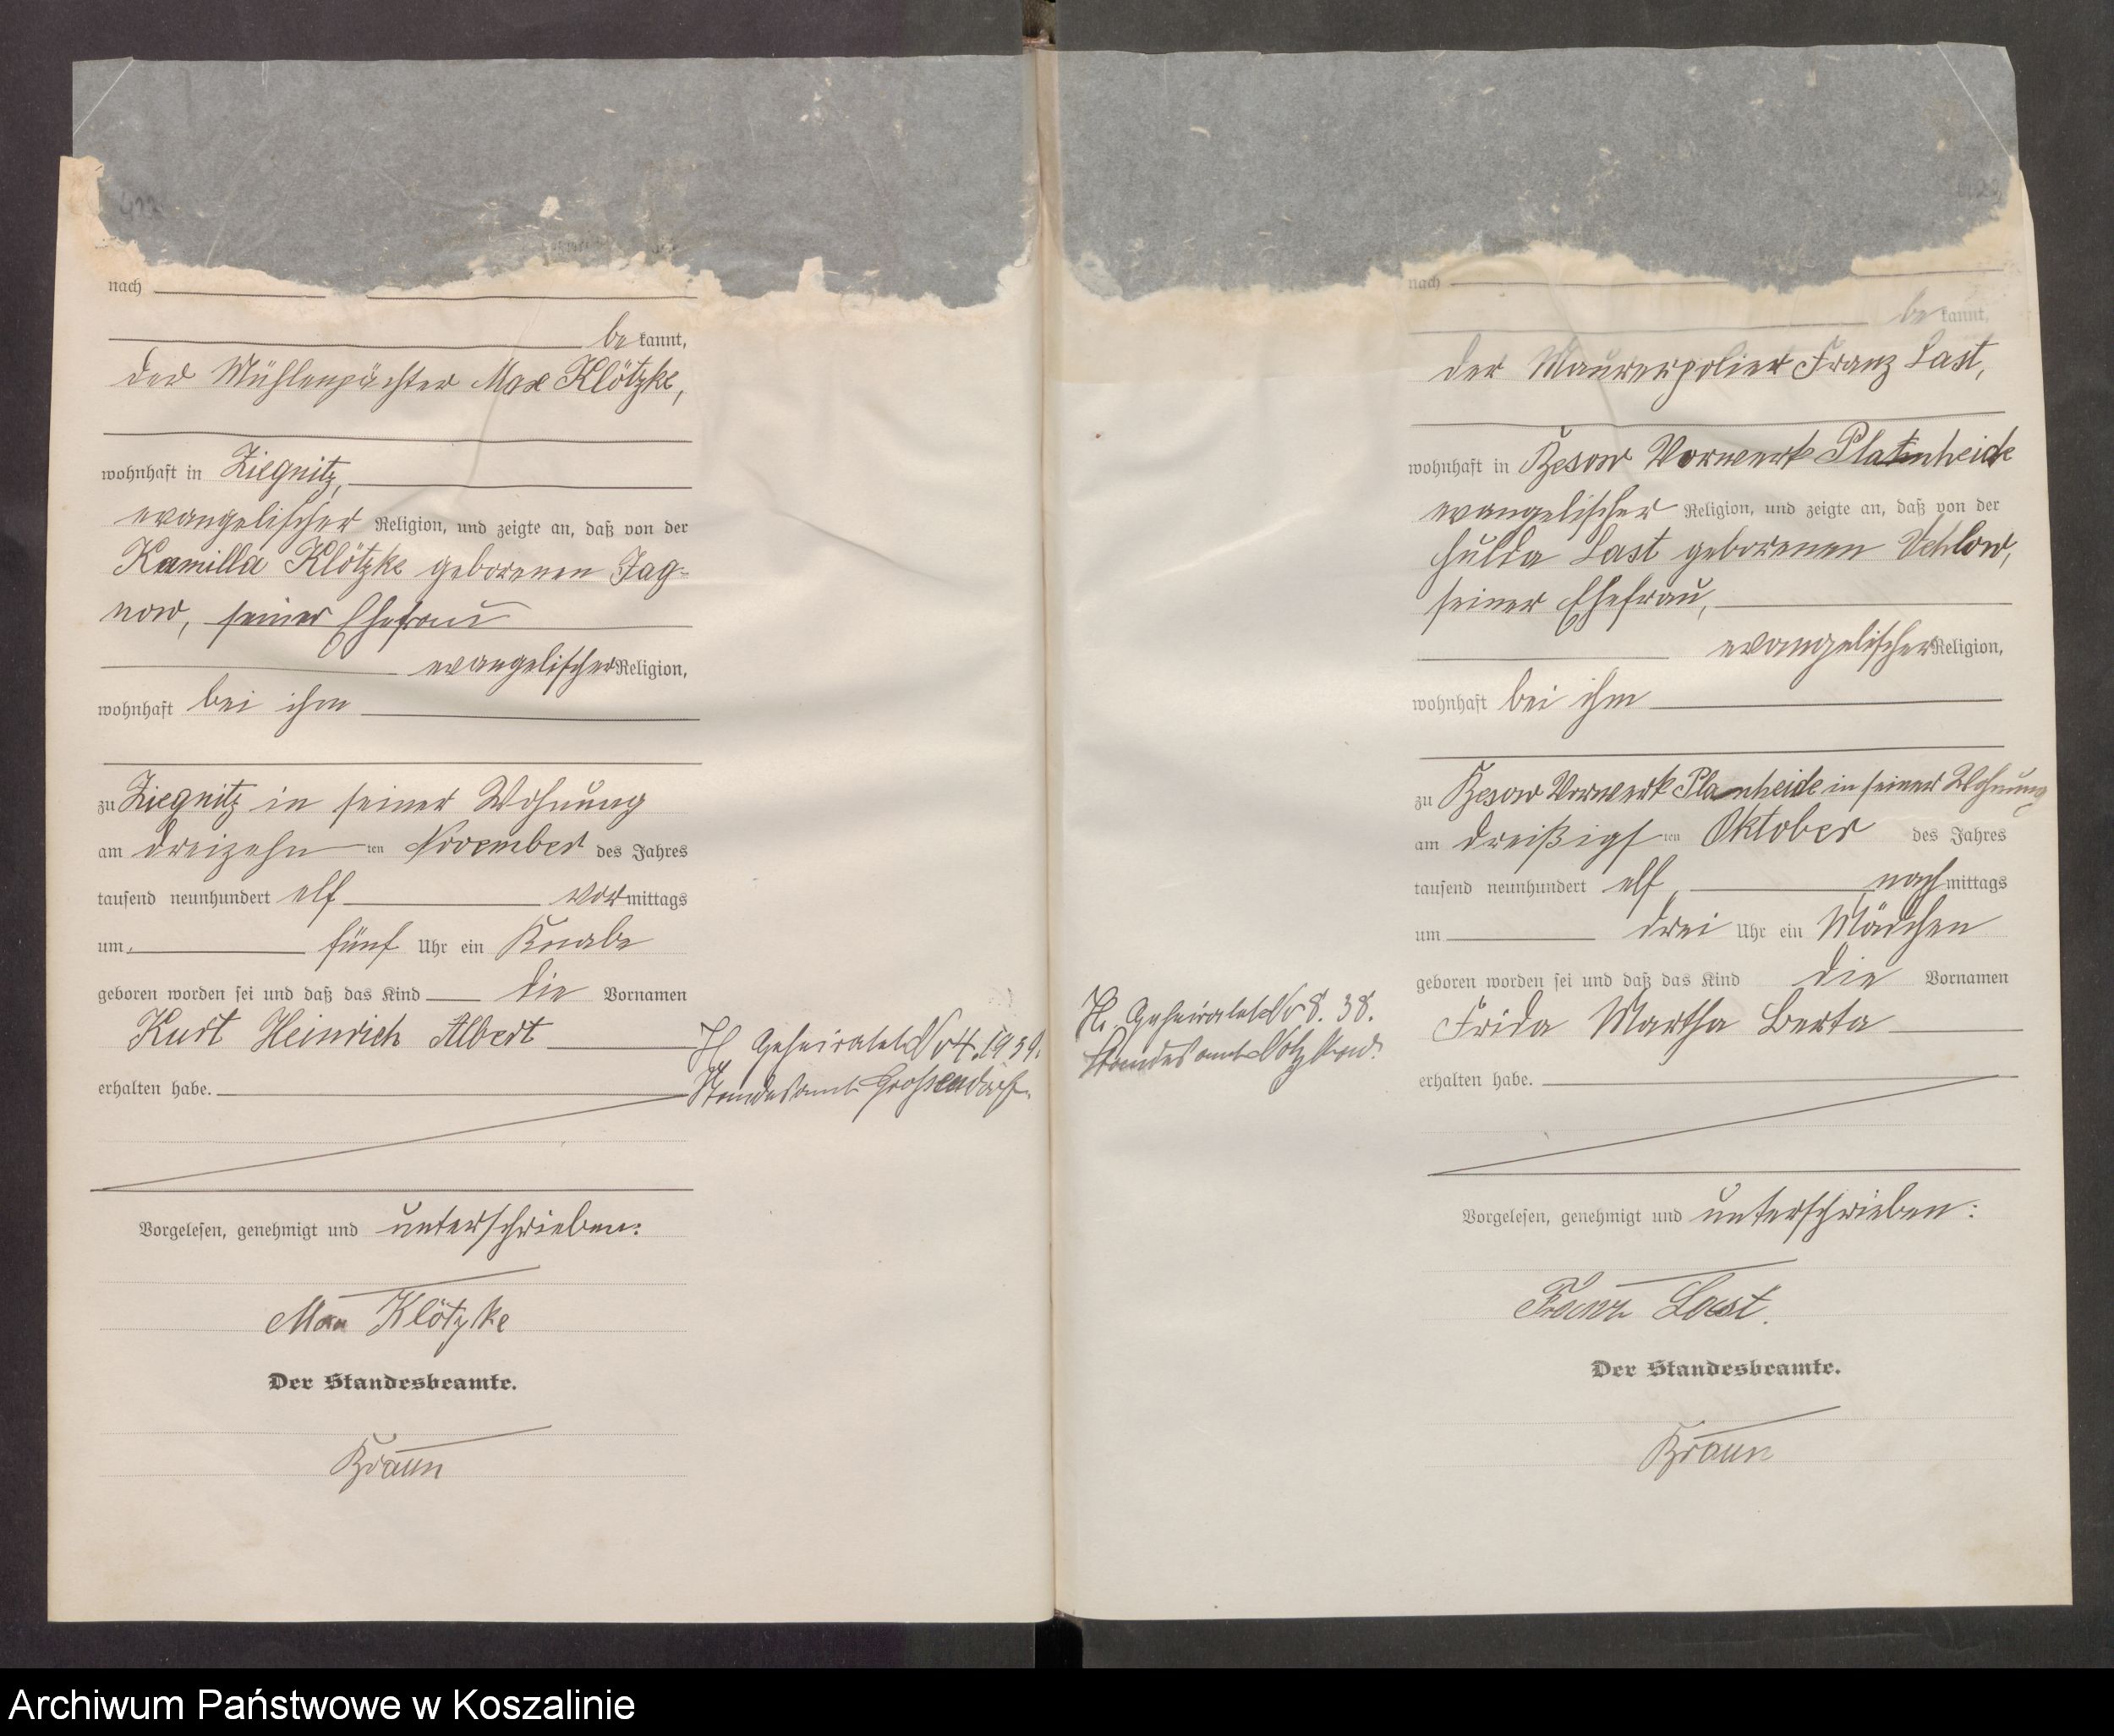 nach
be kannt,
der Mühlenpächter Max Klötzke,
wohnhaft in Ziegnitz,
evangelischer Religion, und zeigte an, daß von der
Kamilla Klötzke geborenen Jag-
now, seiner Ehefrau
evangelischer Religion,
wohnhaft bei ihm
zu Ziegnitz in seiner Wohnung
am dreizehn ten November des Jahres
tausend neunhundert elf vor mittags
um fünf Uhr ein Knabe
geboren worden sei und daß das Kind die Vornamen
Kurt Heinrich Albert
erhalten habe.
Vorgelesen, genehmigt und unterschrieben:
Max Klötzke
Der Standesbeamte.
Braun
Geheiratet No 4.
Standesamt Grossendorf.
nach
be kannt,
der Maurerpolier Franz Last,
wohnhaft in Besow Vorwerk Platenheide
evangelischer Religion, und zeigte an, daß von der
Hulda Last geborenen Vehlow,
seiner Ehefrau,
evangelischer Religion,
wohnhaft bei ihm
zu Besow Vorwerk in seiner Wohnung
am dreißigs ten Oktober des Jahres
tausend neunhundert elf, nach mittags
um drei Uhr ein Mädchen
geboren worden sei und daß das Kind die Vornamen
Frida Martha Berta
erhalten habe.
Vorgelesen, genehmigt und unterschrieben:
Franz Last.
Der Standesbeamte.
Braun
Geheiratet No 8. 38.
Standesamt
Archiwum Państwowe w Koszalinie